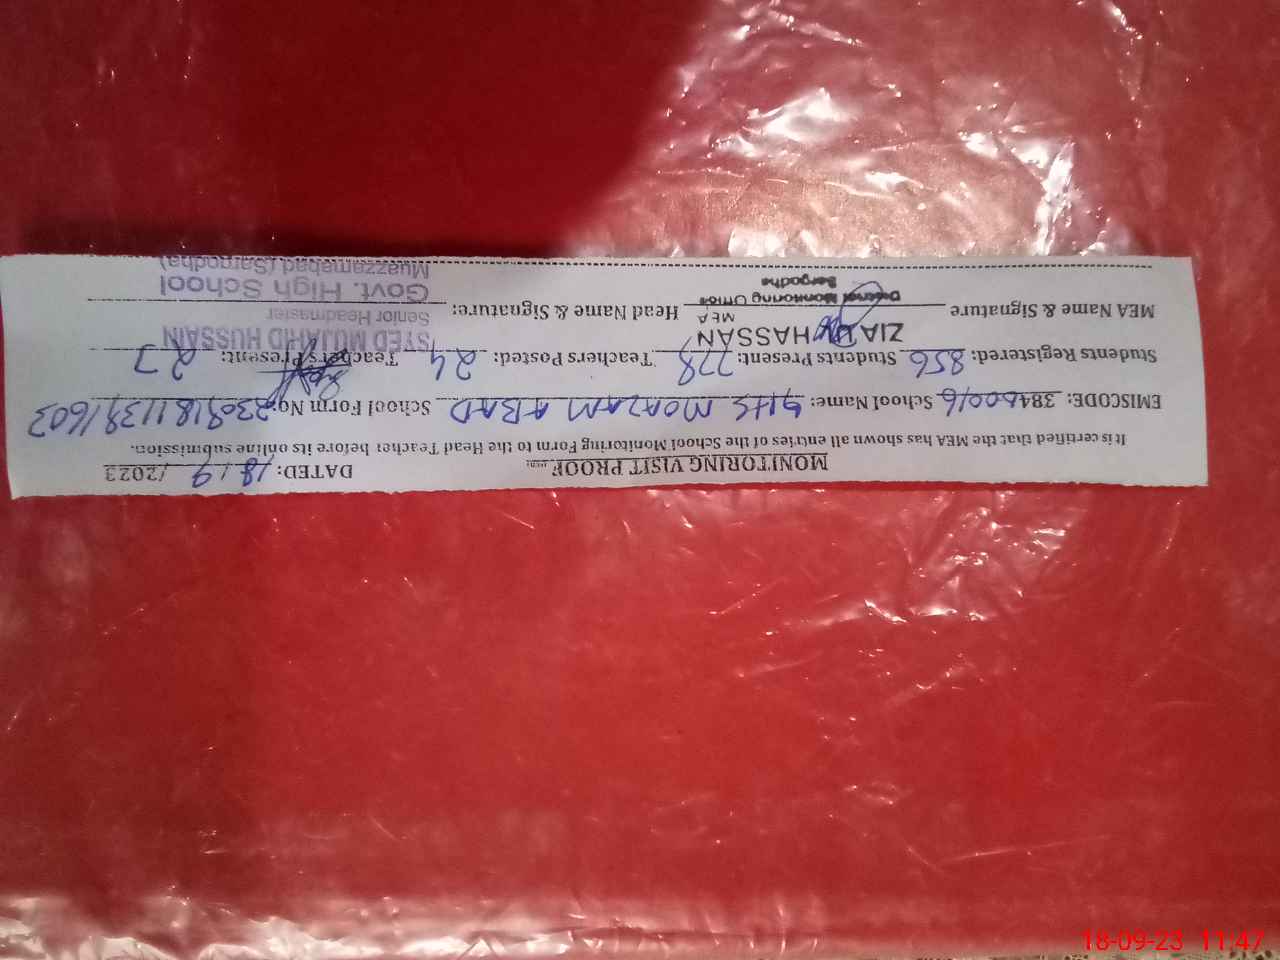 MONITORING VISIT PROOF DATED: 18/9 /2023
It is certified that the MEA has shown all entries of the School Monitoring Form to the Head Teacher before its online submission.
EMISCODE: 38400016 School Name: GHS MOAZAM ABAD School Form No: 23091811391603
Students Registered: 856 Students Present: 778 Teachers Posted: 24 Teachers Present: 23
ZIA UL HASSAN SYED MUJAHID HUSSAIN
MEA Senior Headmaster
MEA Name & Signature District Monitoring Office Head Name & Signature: Govt. High School
Sargodha Muazzamabad (Sargodha)
18-09-23 11:47